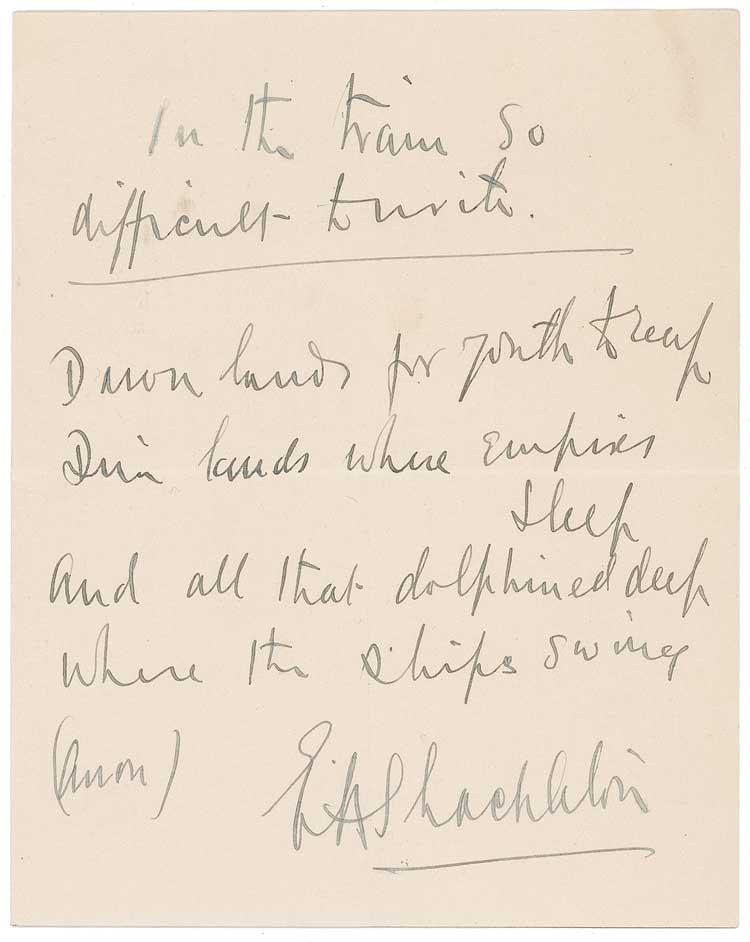 In the train so
difficult to write.
Dawn lands for youth to reap
Dim lands where Empires
sleep
And all that dolphined deep
Where the ships swing
(Anon)
E H Shackleton